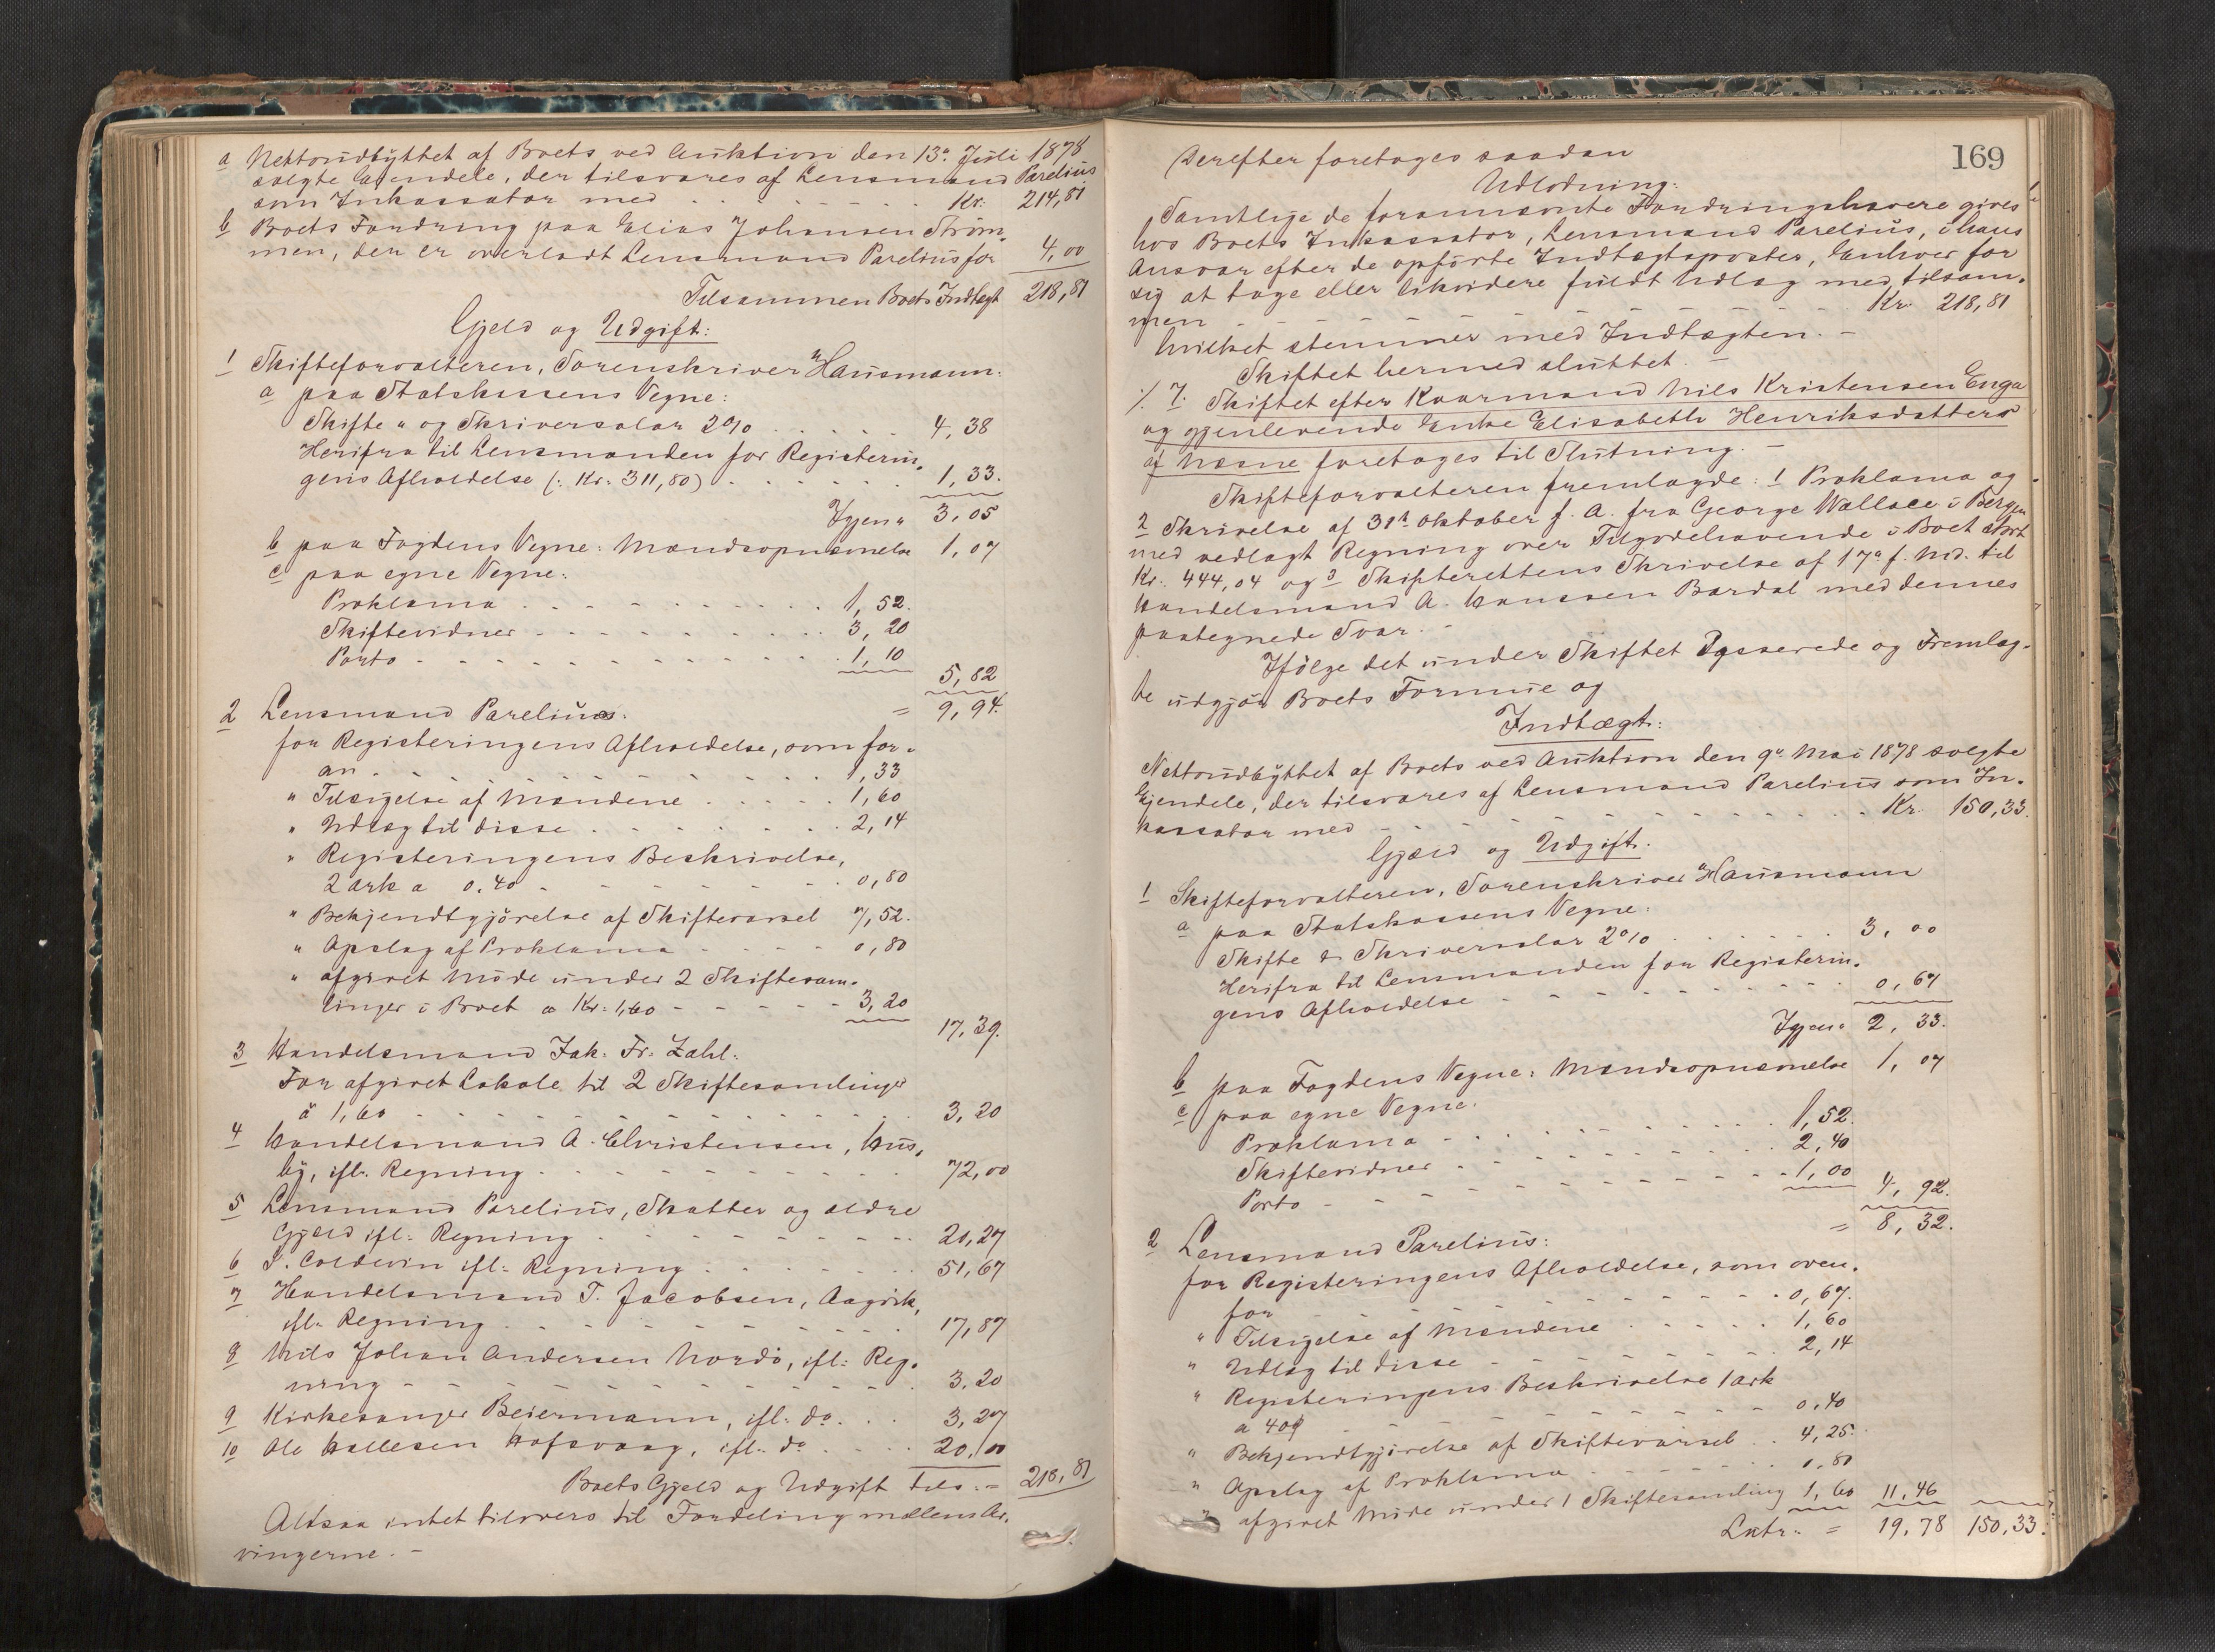 a Nettoudbyttet af Boets ved Auktion den 13de Juli 1878
solgte Eiendele, der tilsvares af Lensmand Parelius
som Inkassator med . . . . . . . . Kr: 214,81
b Boets Fordring paa Elias Johansen Strøm-
men, der er overladt Lensmand Parelius for 4,00
Tilsammen Boets Indtægt 218,81
Gjeld og Udgift:
1 Skifteforvalteren, Sorenskriver Hausmann:
a paa Statskassens Vegne:
Skifte- og Skriversalær 2% . . . . . 4,38
Herifra til Lensmanden for Registerin-
gens Afholdelse (: Kr: 311,80) . . . . . 1,33.
Igjen 3,05
b paa Fogdens Vegne: Mændsopnævnelse 1,07
c paa egne Vegne:
Proklama . . . . . . . . 1,52.
Skiftevidner . . . . . . . . 3,20
Porto . . . . . . . . . 1,10
5,82
= 9,94.
2 Lensmand Parelius:
for Registeringens Afholdelse, som for-
an . . . . . . . . . . 1,33
" Tilsigelse af Mændene . . . . . 1,60
" Udlæg til disse . . . . . . . 2,14
" Registeringens Beskrivelse,
2 Ark a 0.40 . . . . . . . 0,80
" Bekjendtgjørelse af Skiftevarsel 7,52.
" Opslag af Proklama . . . . 0,80
" afgivet Møde under 2 Skiftesam-
linger i Boet a Kr: 1,60 . . . . . 3,20
17,39.
3 Handelsmand Jak. Fr. Zahl:
For afgivet Lokale til 2 Skiftesamlinger
à 1,60 . . . . . . . . . . . . 3,20
4 Handelsmand A. Christensen, Hus-
by, ifl. Regning . . . . . . . . 72,00
5 Lensmand Parelius, Skatter og ældre
Gjæld ifl: Regning . . . . . . . . 20,27
6 S. Coldevin ifl: Regning . . . . . . 51,67
7 Handelsmand T. Jacobsen, Aagvik,
ifl. Regning . . . . . . . . . . 17,87
8 Nils Johan Andersen Nordø, ifl: Reg-
ning . . . . . . . . . . . . 3,20
9 Kirkesanger Beiermann, ifl: do . . . 3,27
10 Ole Hallesen Hofsvaag, ifl: do . . . . 20,00
Boets Gjeld og Udgift tils: = 218,81
Altsaa intet tilovers til Fordeling mellem Ar-
vingerne. -
169
Derefter foretoges saadan
Udlodning:
Samtlige de forannævnte Fordringshavere gives
hos Boets Inkassator, Lensmand Parelius, i hans
Ansvar efter de opførte Indtægtsposter, Enhver for
sig at tage eller likvidere fuldt Udlæg med tilsam-
men . . . . . . . . . . . Kr. 218,81
hvilket stemmer med Indtægten. -
Skiftet hermed sluttet. -
7. Skiftet efter Kaarmand Nils Kristensen Enga
og gjenlevende Enke Elisabeth Henriksdatter
af Næsne foretoges til Slutning. -
Skifteforvalteren fremlagde: 1 Proklama og
2 Skrivelse af 31te Oktober f. A. fra George Wallace i Bergen
med vedlagt Regning over Tilgodehavende i Boet stort
Kr: 444,04 og 3 Skifterettens Skrivelse af 17de f. Md. til
Handelsmand A. Hanssen Bardal med dennes
paategnede Svar. -
Ifølge det under Skiftet Passerede og Fremlag-
te udgjør Boets Formue og
Indtægt:
Nettoudbyttet af Boets ved Auktion den 9de Mai 1878 solgte
Eiendele, der tilsvares af Lensmand Parelius som In-
kassator med . . . . . . . . . . . Kr. 150,33.
Gjæld og Udgift:
1 Skifteforvalteren, Sorenskriver Hausmann
a paa Statskassens Vegne:
Skifte & Skriversalær 2% . . . . . . 3,00
Herifra til Lensmanden for Registerin-
gens Afholdelse . . . . . . . . . 0,67
Igjen: 2,33.
b paa Fogdens Vegne: Mændsopnævnelse 1,07
c paa egne Vegne:
Proklama . . . . . . . . . 1,52.
Skiftevidner . . . . . . . . 2,40
Porto . . . . . . . . . . . 1,00
4,92.
= 8,32.
2 Lensmand Parelius:
for Registeringens Afholdelse, som oven-
for . . . . . . . . . . . 0,67.
" Tilsigelse af Mændene . . . . . 1,60
" Udlæg til disse . . . . . . . 2,14
" Registeringens Beskrivelse 1 Ark
a 40 . . . . . . . . . . 0,40
" Bekjendtgjørelse af Skiftevarsel . . 4,25.
" Opslag af Proklama . . . . . . 0,80
" afgivet Møde under 1 Skiftesamling 1,60 11,46
Latr. = 19,78 150,33.